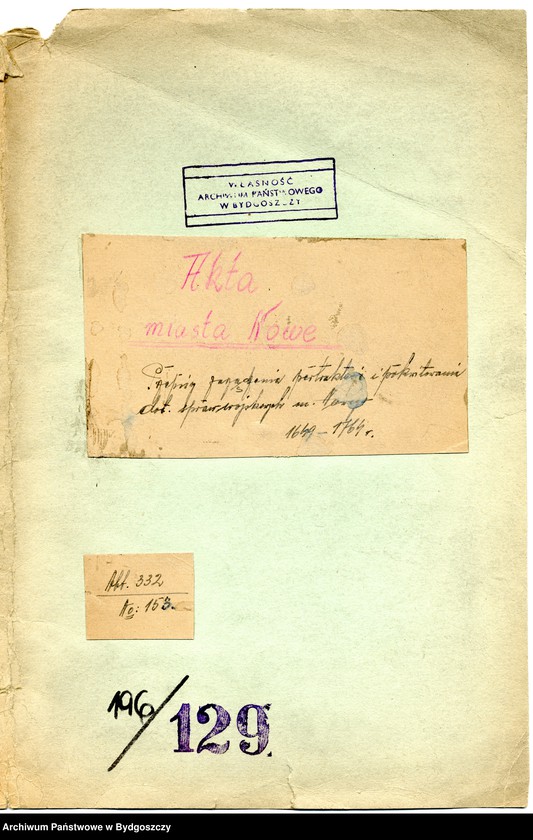 WŁASNOŚĆ
ARCHIWUM PAŃSTWOWEGO
W BYDGOSZCZY
Akta
miasta Nowe
i pokwitowania
dot. spraw wojskowych m. Nowe
1649 – 1764 r.
Abt. 332
No: 153.
196/129
Archiwum Państwowe w Bydgoszczy